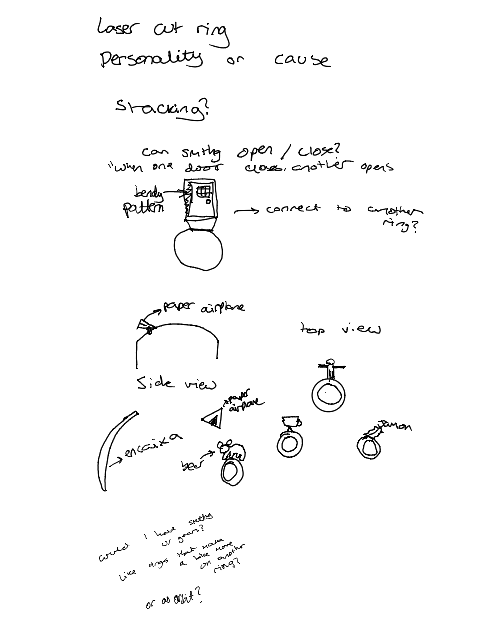 Laser cut ring
Personality or cause
Stacking?
can smthg open / close?
"when one door closes, another opens
bendy
pattern
→ connect to another
ring?
paper airplane
top view
Side view
paper
airplane
encaixa
bear
could I have smthg
w gears?
like rings that make
a bike move
on another
ring?
or an orbit?